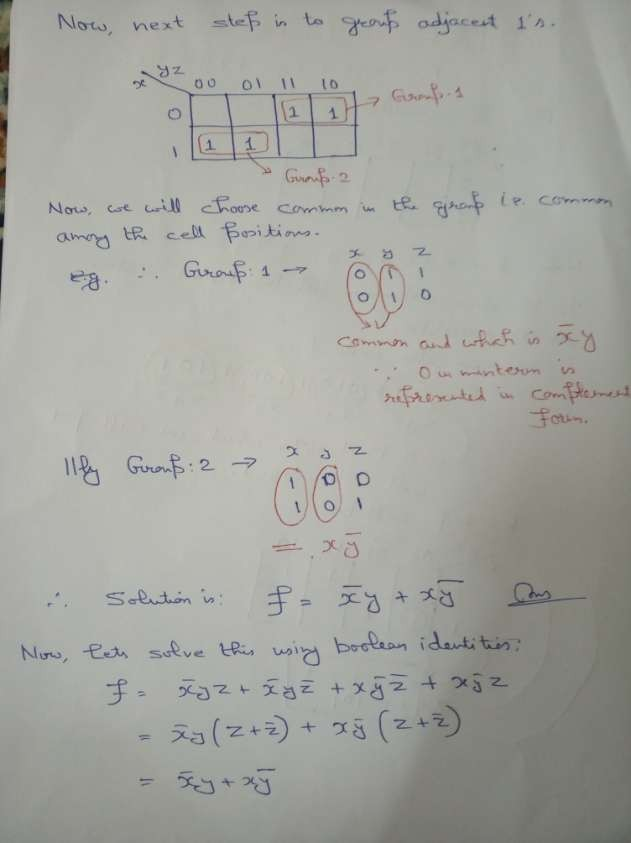 Now, next step is to group adjacent 1's.
yz
x 00 01 11 10
0 1 1 → Group-1
1 1 1
Group-2
Now, we will choose common in the group i.e. common
among the cell positions.
x y z
e.g. ∴ Group:1 → 0 1 1
0 1 0
common and which is x̄y
∵ 0 in minterm is
represented in complement
form.
x y z
||ly Group:2 → 1 0 0
1 0 1
= xȳ
∴ Solution is: f = x̄y + xȳ Ans
Now, lets solve this using boolean identities:
f = x̄yz + x̄yz̄ + xȳz̄ + xȳz
= x̄y(z+z̄) + xȳ(z+z̄)
= x̄y + xȳ